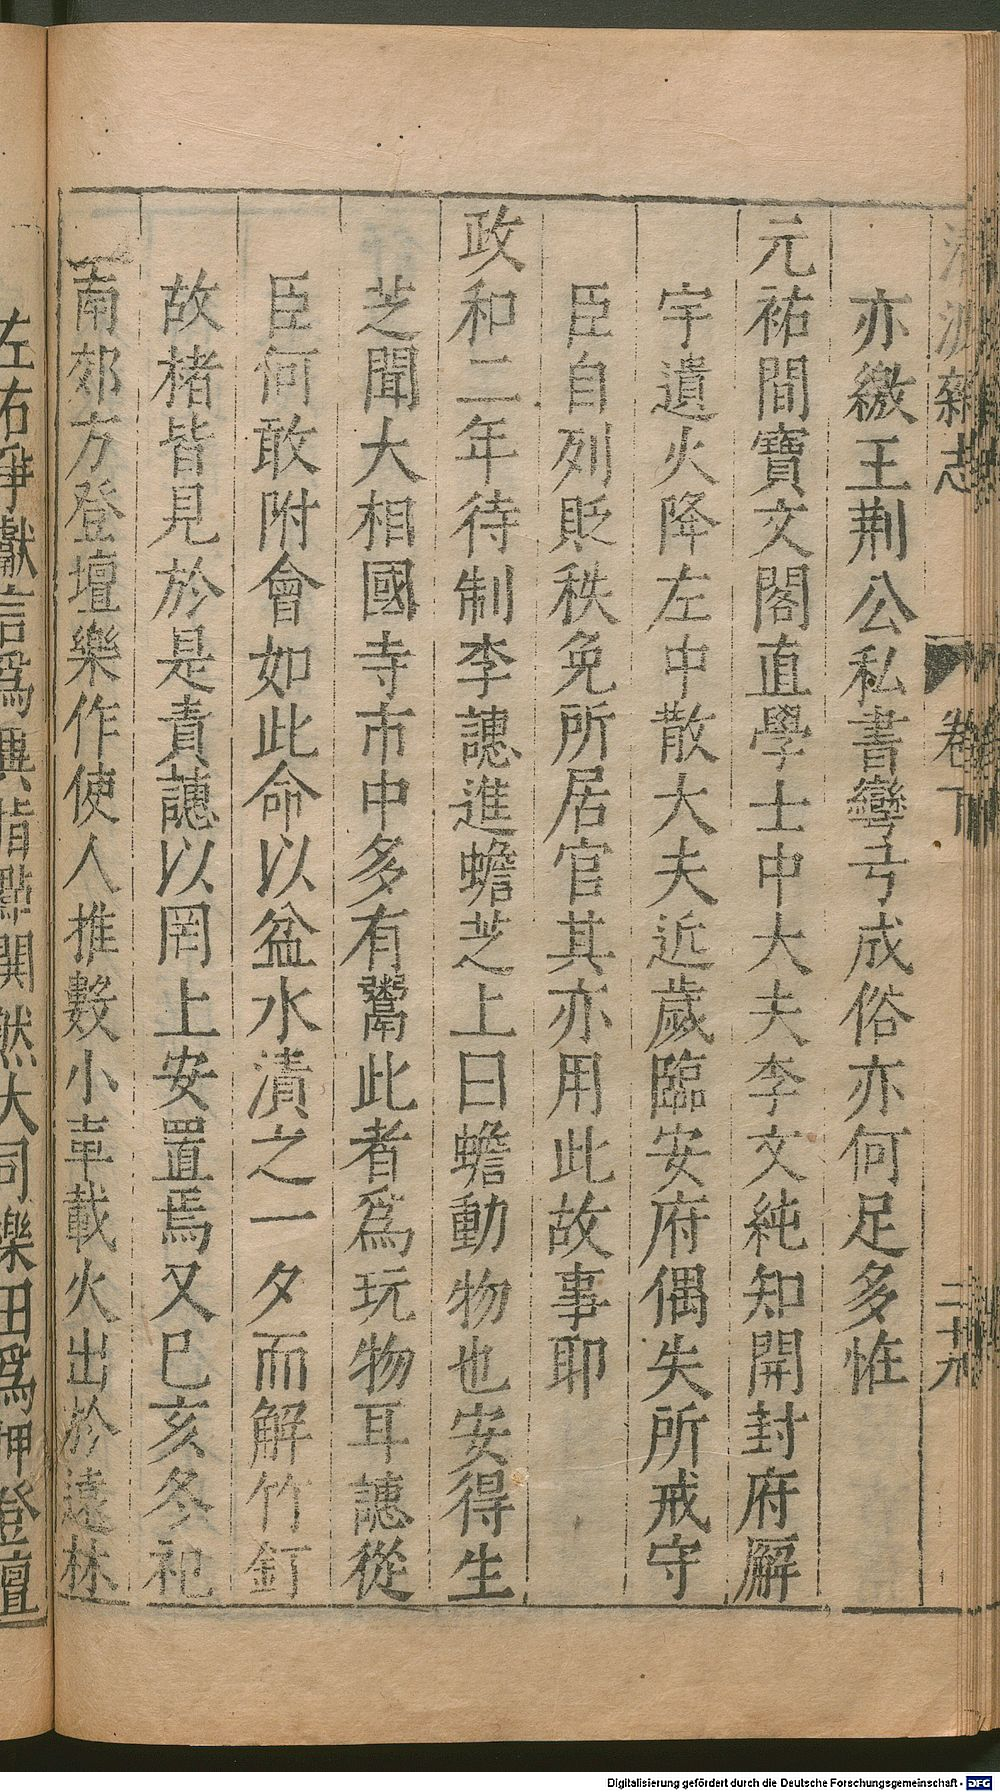 清波雜志
卷下
二十九
亦繳王荆公私書彎弓成俗亦何足多恠
元祐間寶文閣直學士中大夫李文純知開封府廨
宇遺火降左中散大夫近歲臨安府偶失所戒守
臣自列貶秩免所居官其亦用此故事耶
政和二年待制李譓進蟾芝上曰蟾動物也安得生
芝聞大相國寺市中多有鬻此者爲玩物耳譓從
臣何敢附會如此命以盆水漬之一夕而解竹釘
故楮皆見於是責譓以罔上安置焉又巳亥冬祀
南郊方登壇樂作使人推數小車載火出於遠林
左右爭獻言爲異指點閧然大同樂田爲神登壇
Digitalisierung gefördert durch die Deutsche Forschungsgemeinschaft - DFG